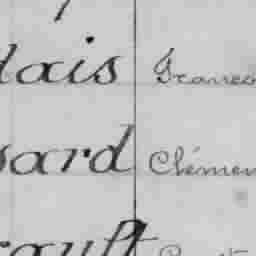 dais Franço
sard Clémen
ault